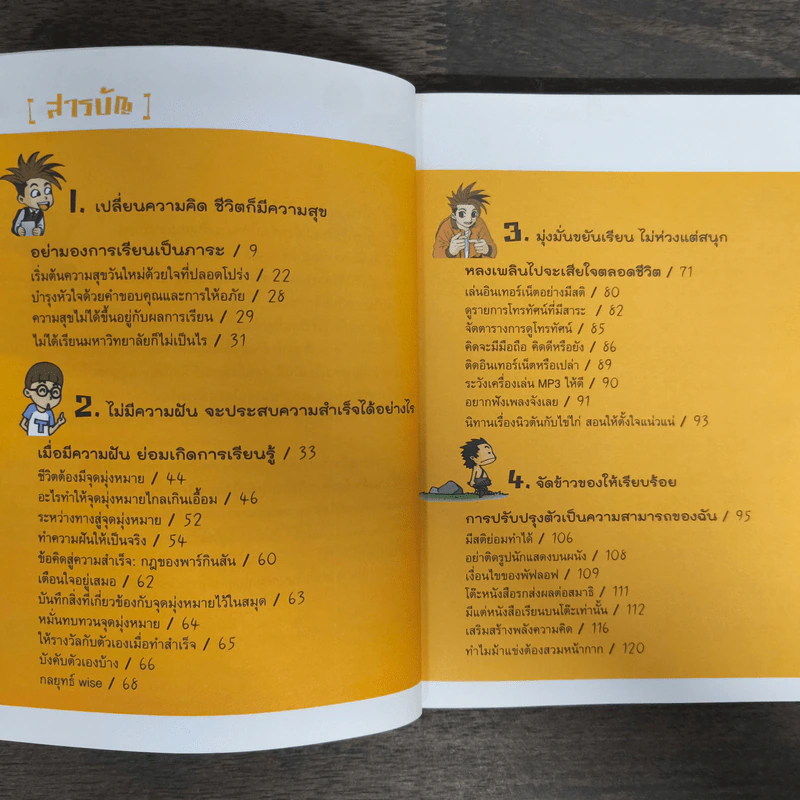 [ สารบัญ ]
1. เปลี่ยนความคิด ชีวิตก็มีความสุข
อย่ามองการเรียนเป็นภาระ / 9
เริ่มต้นความสุขวันใหม่ด้วยใจที่ปลอดโปร่ง / 22
บำรุงหัวใจด้วยคำขอบคุณและการให้อภัย / 28
ความสุขไม่ได้ขึ้นอยู่กับผลการเรียน / 29
ไม่ได้เรียนมหาวิทยาลัยก็ไม่เป็นไร / 31
2. ไม่มีความฝัน จะประสบความสำเร็จได้อย่างไร
เมื่อมีความฝัน ย่อมเกิดการเรียนรู้ / 33
ชีวิตต้องมีจุดมุ่งหมาย / 44
อะไรทำให้จุดมุ่งหมายไกลเกินเอื้อม / 46
ระหว่างทางสู่จุดมุ่งหมาย / 52
ทำความฝันให้เป็นจริง / 54
ข้อคิดสู่ความสำเร็จ: กฎของพาร์กินสัน / 60
เตือนใจอยู่เสมอ / 62
บันทึกสิ่งที่เกี่ยวข้องกับจุดมุ่งหมายไว้ในสมุด / 63
หมั่นทบทวนจุดมุ่งหมาย / 64
ให้รางวัลกับตัวเองเมื่อทำสำเร็จ / 65
บังคับตัวเองบ้าง / 66
กลยุทธ์ wise / 68
3. มุ่งมั่นขยันเรียน ไม่ห่วงแต่สนุก
หลงเพลินไปจะเสียใจตลอดชีวิต / 71
เล่นอินเทอร์เน็ตอย่างมีสติ / 80
ดูรายการโทรทัศน์ที่มีสาระ / 82
จัดตารางการดูโทรทัศน์ / 85
คิดจะมีมือถือ คิดดีหรือยัง / 86
ติดอินเทอร์เน็ตหรือเปล่า / 89
ระวังเครื่องเล่น MP3 ให้ดี / 90
อยากฟังเพลงจังเลย / 91
นิทานเรื่องนิวตันกับไข่ไก่ สอนให้ตั้งใจแน่วแน่ / 93
4. จัดข้าวของให้เรียบร้อย
การปรับปรุงตัวเป็นความสามารถของฉัน / 95
มีสติย่อมทำได้ / 106
อย่าติดรูปนักแสดงบนผนัง / 108
เงื่อนไขของพัฟลอฟ / 109
โต๊ะหนังสือรกส่งผลต่อสมาธิ / 111
มีแต่หนังสือเรียนบนโต๊ะเท่านั้น / 112
เสริมสร้างพลังความคิด / 116
ทำไมม้าแข่งต้องสวมหน้ากาก / 120